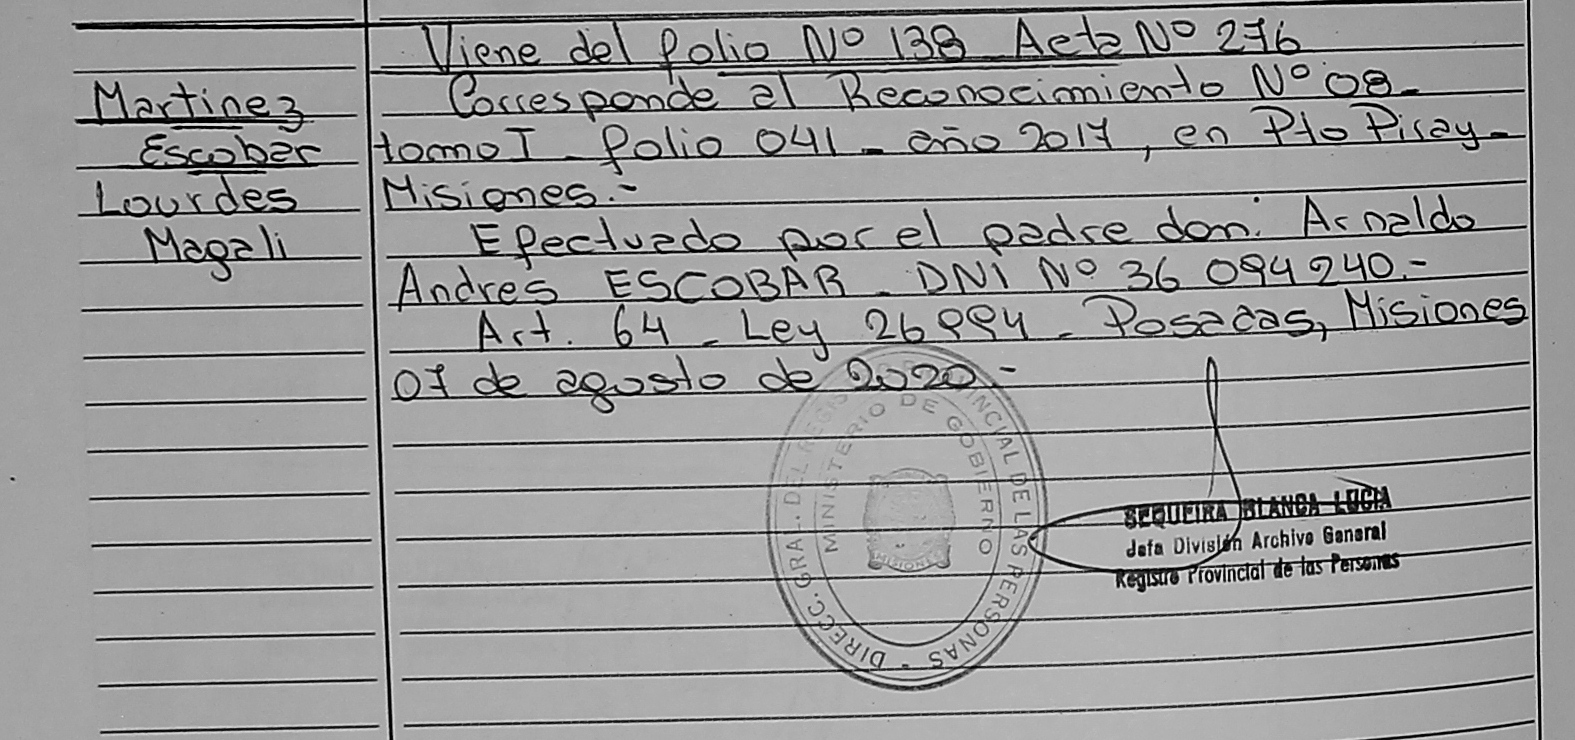 Viene del folio Nº 138 Acta Nº 276
Martinez
Escobar
Lourdes
Magali
Corresponde al Reconocimiento Nº 08-
tomo I - folio 041 - año 2017, en Pto Piray-
Misiones.-
Efectuado por el padre don: Arnaldo
Andres ESCOBAR - DNI Nº 36 094 240.-
Art. 64 - Ley 26994 - Posadas, Misiones
07 de agosto de 2020.-
DIRECC. GRAL. DEL REGIS PROVINCIAL DE LAS PERSONAS -
MINISTERIO DE GOBIERNO
MISIONES
SEQUEIRA BLANCA LUCIA
Jefa División Archivo General
Registro Provincial de las Personas